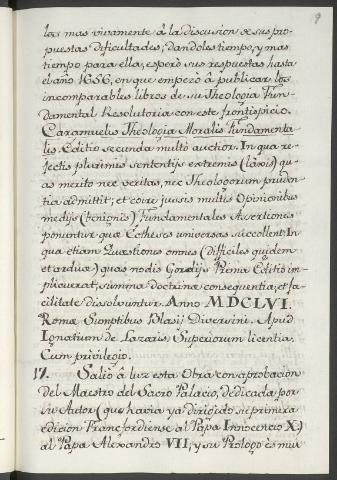 9
los mas vivamente â la discusion de sus pro-
puestas dificultades; dandoles tiempo, y mas
tiempo para ella; esperò sus respuestas hasta
el año 1656, en que emperò â publicar los
incomparables libros de su Theologia Fun-
damental Resolutoria con este frontispicio.
Caramuelis Theologia Moralis Fundamenta-
lis. Editio secunda multo auctior. In qua re-
jectis plurimis sententijs extremis (laxis) qu-
as merito nec veritas, nec Theologorum pruden-
tia admittit; et coire jussis multis Opinionibus
medijs (benignis) Fundamentales Assertiones
ponuntur quæ Ecthesces universas succollent. In
qua etiam Quæstiones omnes (difficiles quidem
et arduæ) quas nodis Gordijs Prima Editio im-
plicuerat, summa doctrinæ consequentia, et fa-
cilitate dissolvuntur. Anno MDCLVI.
Romæ Sumptibus Blasij Diversini. Apud
Ignatium de Lazaris Superiorum licentia.
Cum privilegio.
17. Saliò â luz esta Obra con aprobacion
del Maestro del Sacro Palacio, dedicada por
su Autor (que havia ya dirigido su primera
edicion Francfordiense al Papa Innocencio X.)
al Papa Alexandro VII, y su Prologo es mui